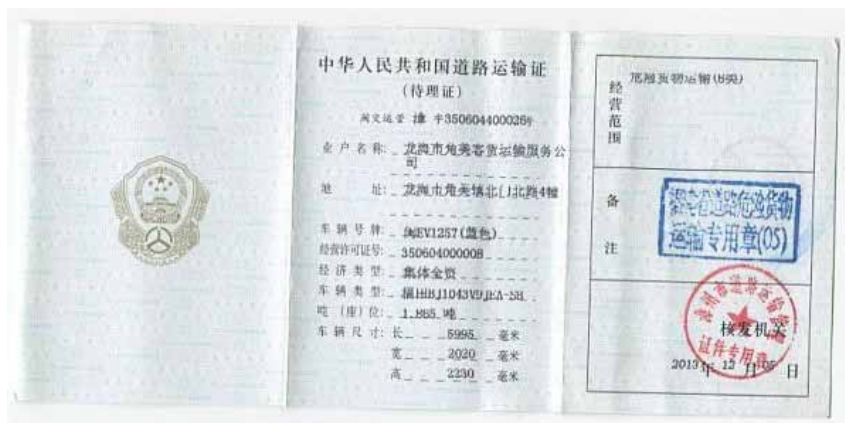 中华人民共和国道路运输证
(待理证)
闽交运管 漳 字350604400026号
业户名称: 龙海市角美客货运输服务公
司
地 址: 龙海市角美镇北门北路4幢
车辆号牌: 闽EV1257(蓝色)
经营许可证号: 350604000008
经济类型: 集体全资
车辆类型: 福田BJ1043V9JEA-SB
吨(座)位: 1.865 吨
车辆尺寸: 长 5995 毫米
宽 2020 毫米
高 2230 毫米
经营范围
危险货物运输(8类)
备注
福建省道路危险货物
运输专用章(05)
证件专用章
核发机关
2013年 12 月 05 日